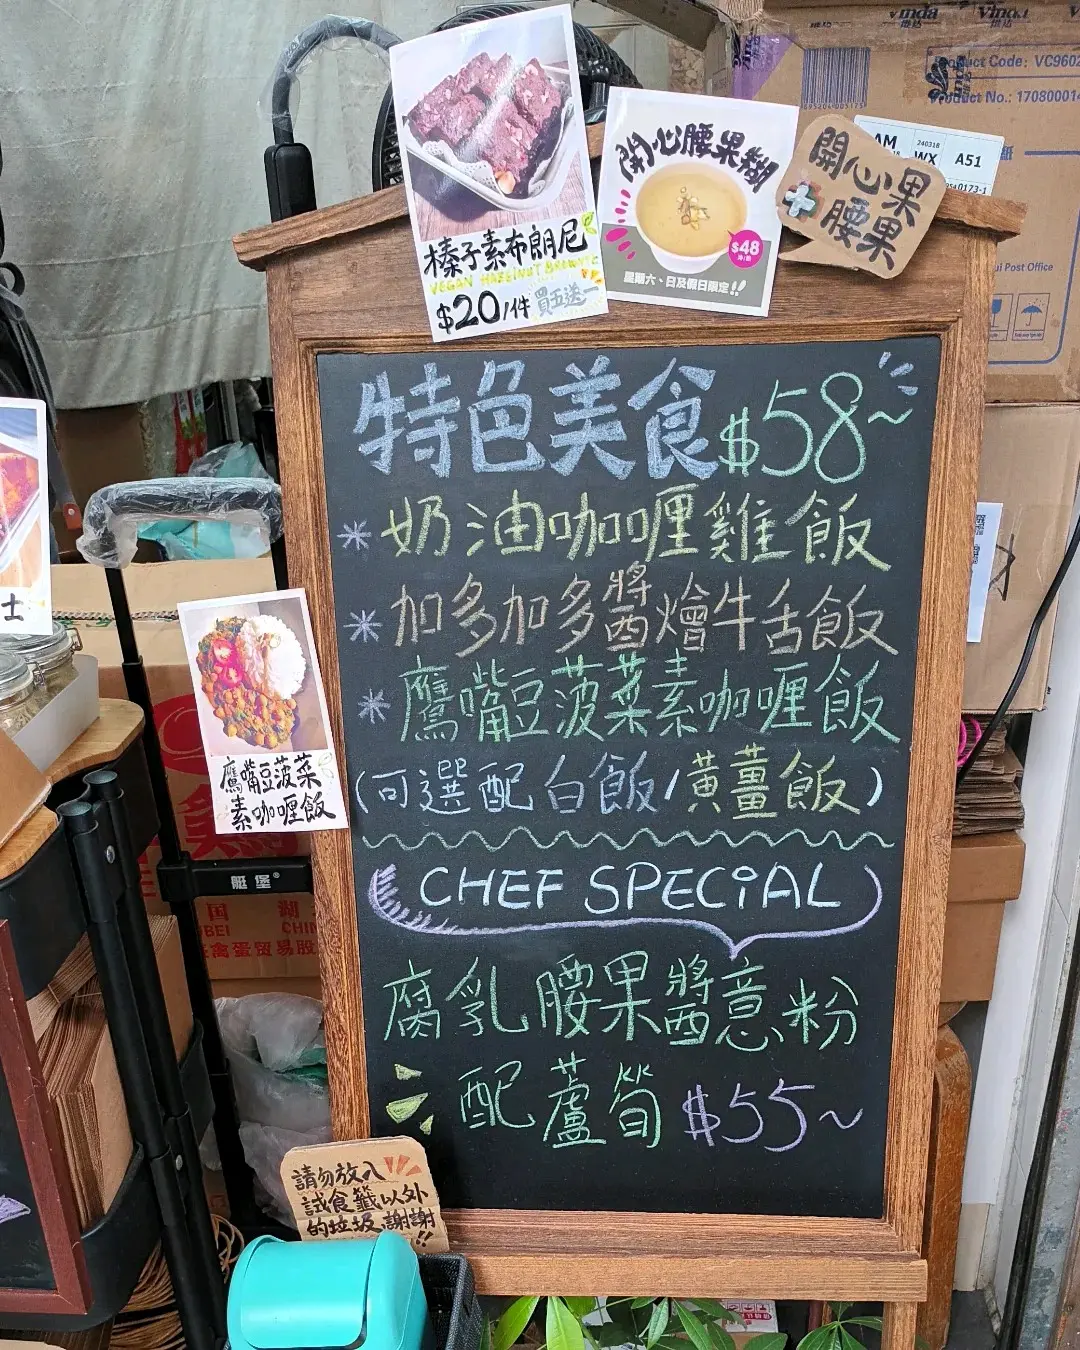 榛子素布朗尼
VEGAN HAZELNUT BROWNIE
$20/件 買五送一
開心腰果糊
$48
星期六、日及假日限定!!
開心果
+
腰果
Vinda
Vinda
Product Code: VC9602
Product No.: 17080001
AM
WX
A51
特色美食 $58~
* 奶油咖喱雞飯
* 加多加多醬燴牛舌飯
* 鷹嘴豆菠菜素咖喱飯
(可選配白飯/黃薑飯)
CHEF SPECiAL
腐乳腰果醬意粉
配蘆筍 $55~
士
鷹嘴豆菠菜
素咖喱飯
艇堡®
請勿放入
試食籤以外
的垃圾,謝謝!!